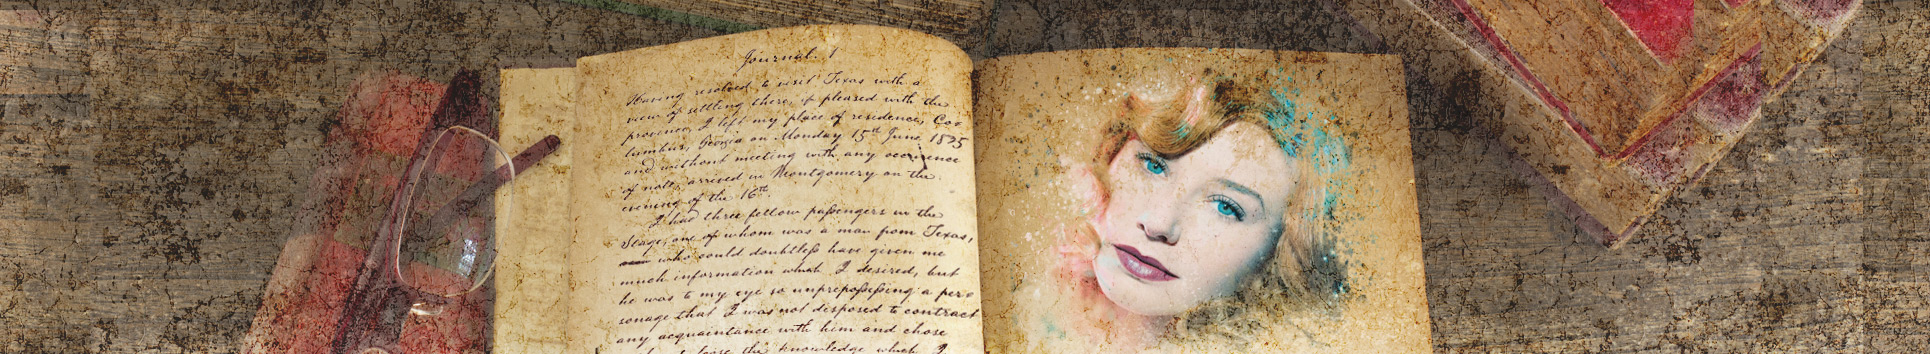 Journal. 1
Having resolved to visit Texas with a
view of settling there, if pleased with the
province, I left my place of residence, Co-
lumbus, Georgia on Monday 15th June, 1835
and without meeting with any occurrence
of note, arrived in Montgomery on the
evening of the 16th.
I had three fellow paſsengers in the
Stage, one of whom was a man from Texas,
who could doubtleſs have given me
much information which I desired, but
he was to my eye so unprepoſseſsing a per-
sonage that I was not disposed to contract
any acquaintance with him and chose
the knowledge which I